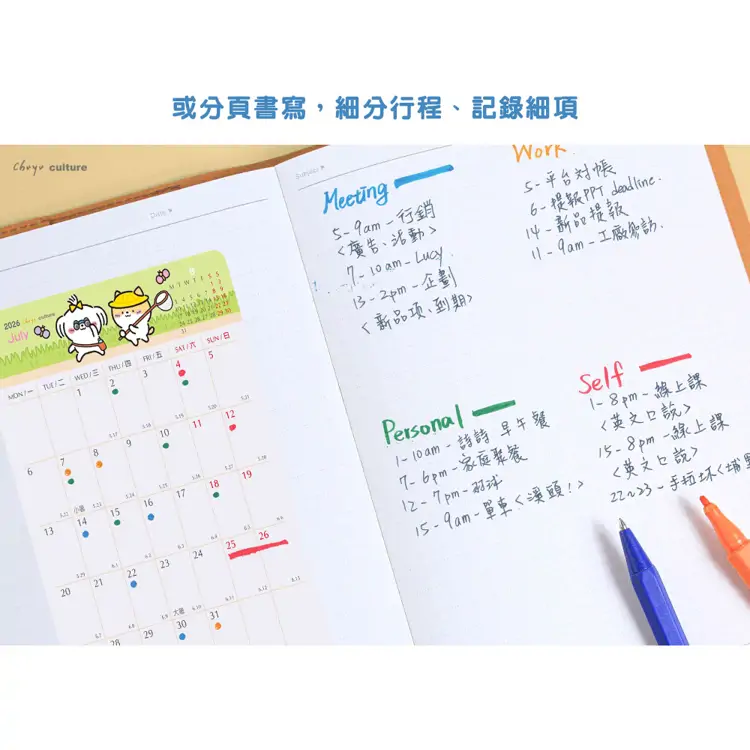 或分頁書寫,細分行程、記錄細項
Choyo culture
Date
Subject
Meeting
5-9am-行銷
<廣告、活動>
7-10am-Lucy
13-2pm-企劃
<新品項、到期>
Work
5-平台对帳
6-提報PPT deadline.
14-新品提報
11-9am-工廠參訪.
Personal
1-10am-詩詩 早午餐
7-6pm-家庭聚餐
12-7pm-羽球
15-9am-單車<溪頭!>
Self
1-8pm-線上課
<英文口說>
15-8pm-線上課
<英文口說>
22~23-手拉坏<埔里
2026
July
8
M T W T F S S
MON/一 TUE/二 WED/三 THU/四 FRI/五 SAT/六 SUN/日
1 2 3 4 5
6 7 8 9 10 11 12
小暑
13 14 15 16 17 18 19
20 21 22 23 24 25 26
大暑
28 29 30 31